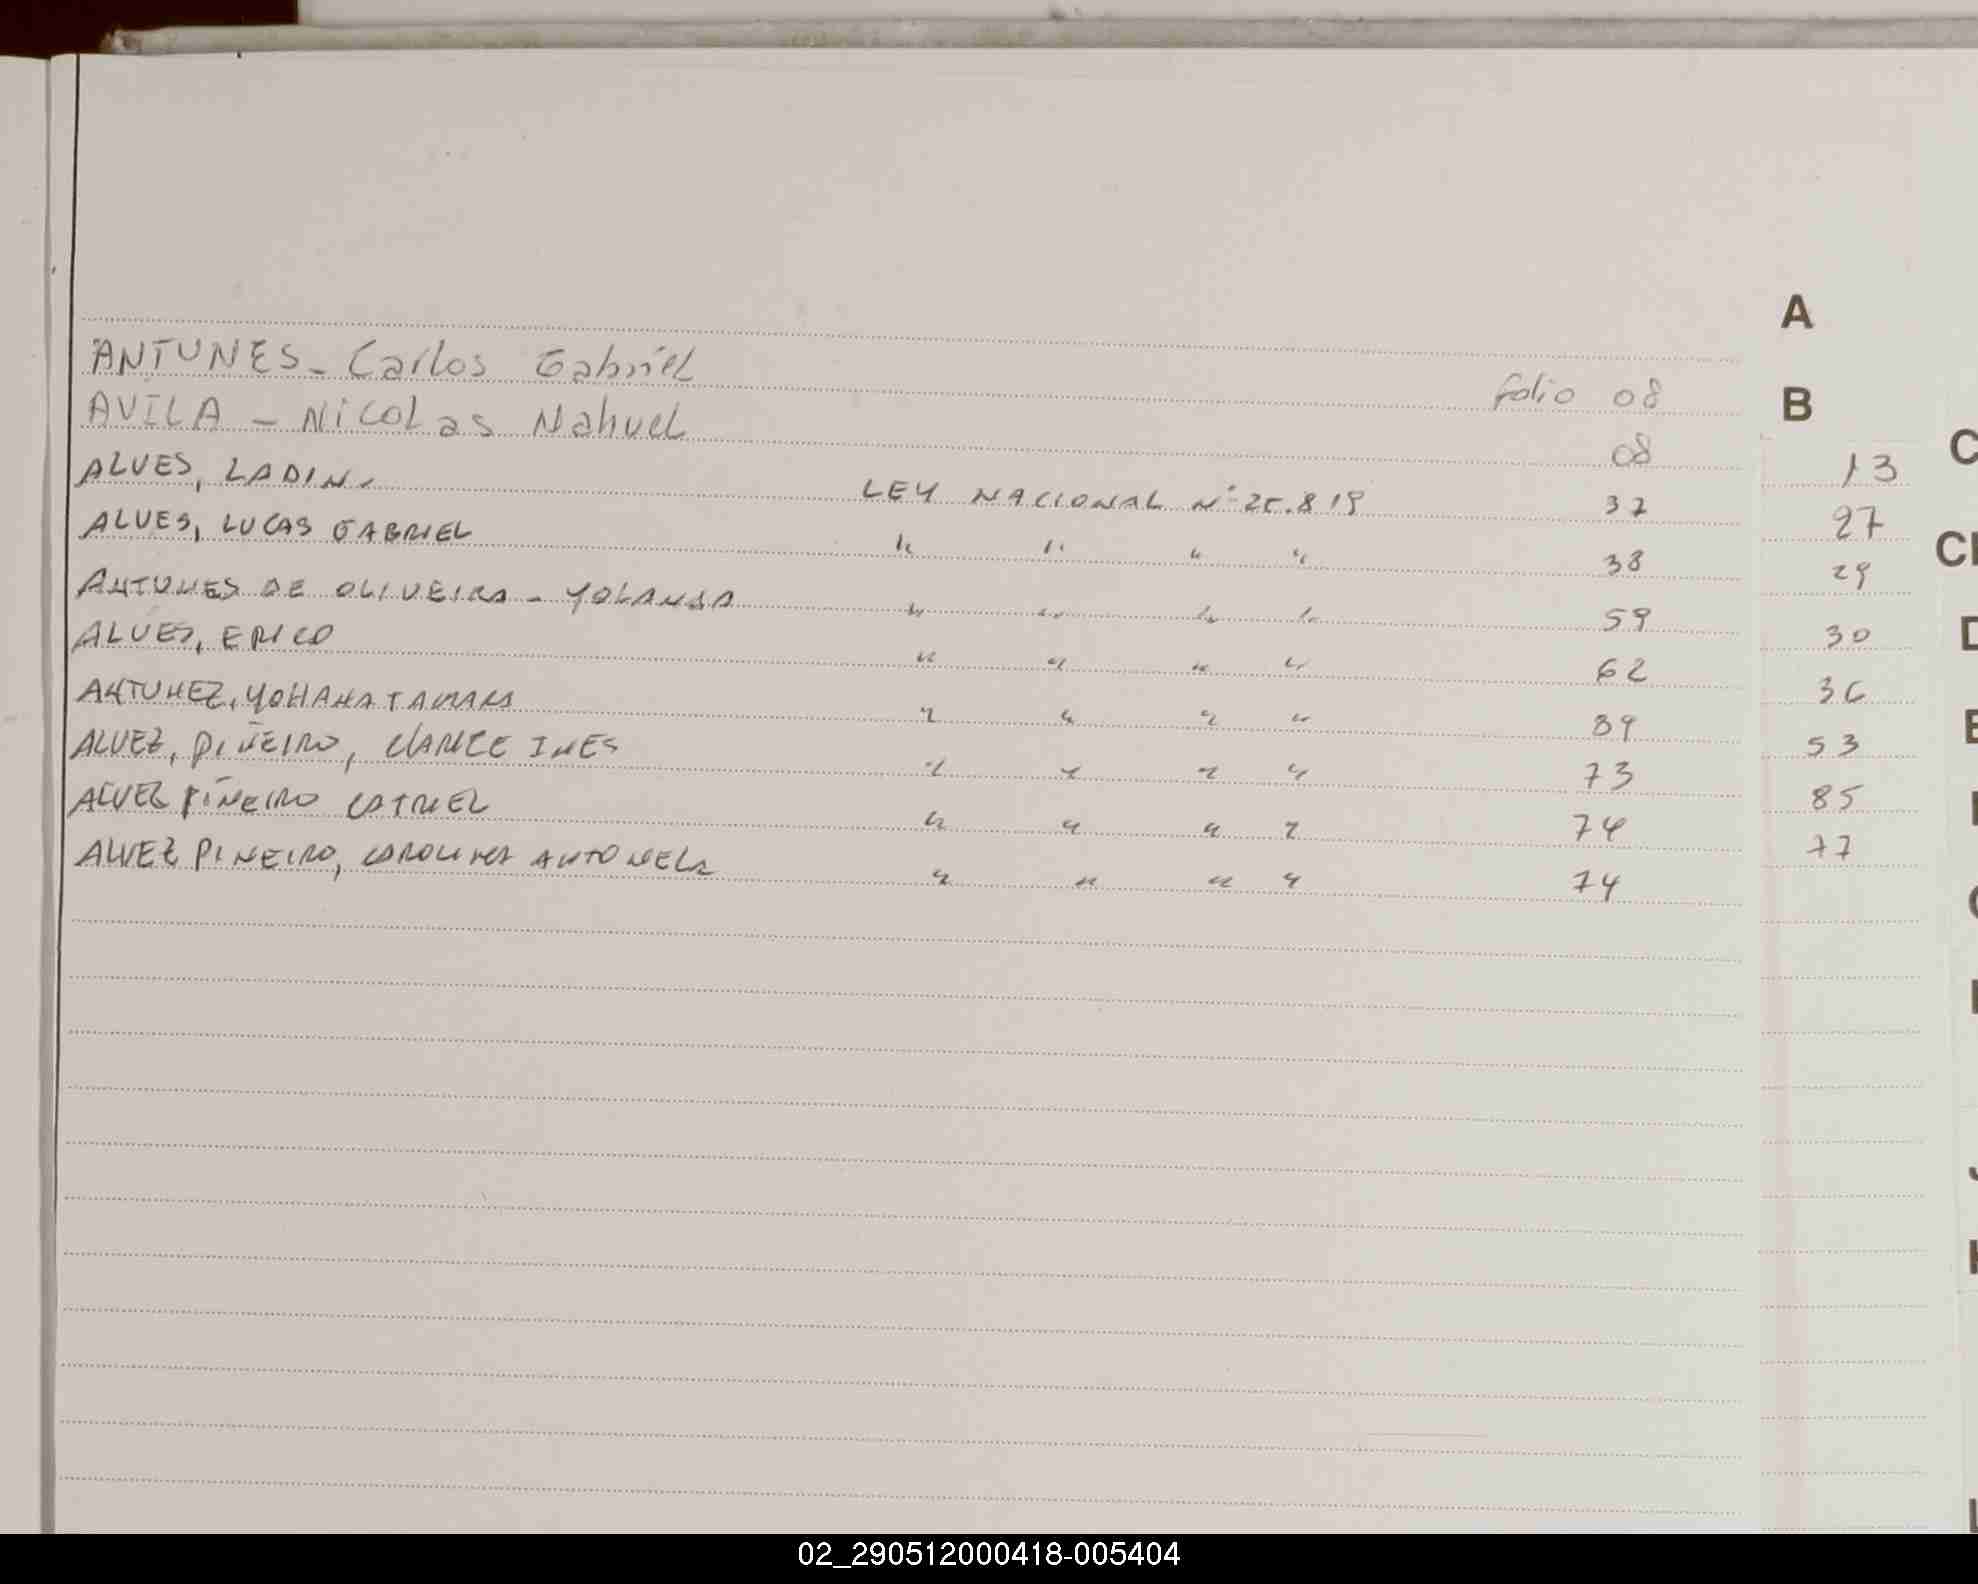 A
ANTUNES - Carlos Gabriel folio 08
B
AVILA - Nicolas Nahuel 08
C
ALVES, LADIN. LEY NACIONAL Nº 25.819 37 13
ALVES, LUCAS GABRIEL " " " " 38 27
ANTUNES DE OLIVEIRA - YOLANDA " " " " 59 29
ALVES, ERICO " " " " 62 30
ANTUNEZ, YOHANA TAMARA " " " " 89 36
ALVEZ, PIÑEIRO, CLARICE INES " " " " 73 53
ALVEZ PIÑEIRO CATRIEL " " " " 74 85
ALVEZ PIÑEIRO, CAROLINA ANTONELA " " " " 74 77
02_290512000418-005404